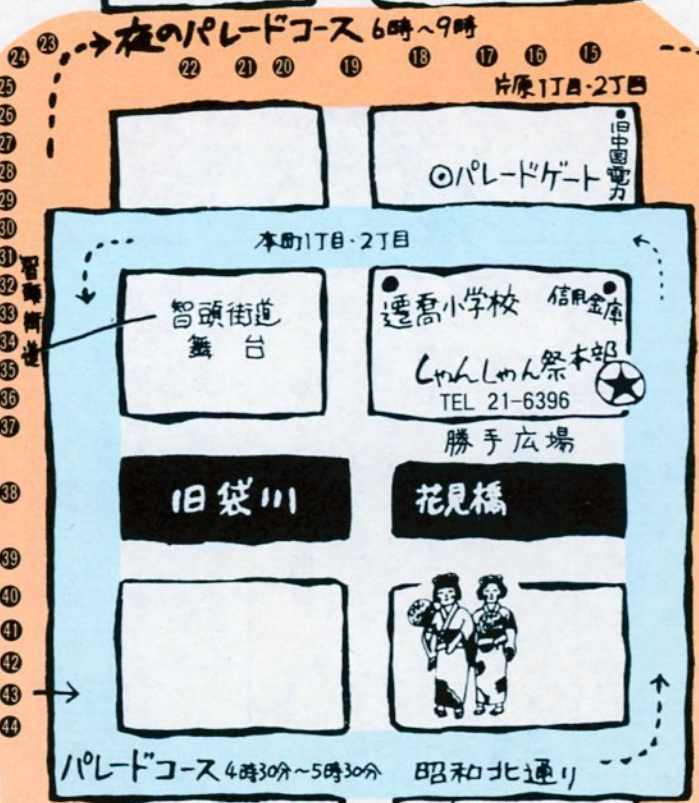 夜のパレードコース 6時～9時
㉔ ㉓ ㉒ ㉑ ⑳ ⑲ ⑱ ⑰ ⑯ ⑮
片原1丁目・2丁目
㉕
㉖
㉗
㉘
㉙
㉚
㉛
㉜
㉝
㉞
㉟
㊱
㊲
㊳
㊴
㊵
㊶
㊷
㊸
㊹
智頭街道
旧中国電力
パレードゲート
本町1丁目・2丁目
智頭街道
舞台
遷喬小学校
信用金庫
しゃんしゃん祭本部
TEL 21-6396
勝手広場
旧袋川
花見橋
パレードコース 4時30分～5時30分
昭和北通り